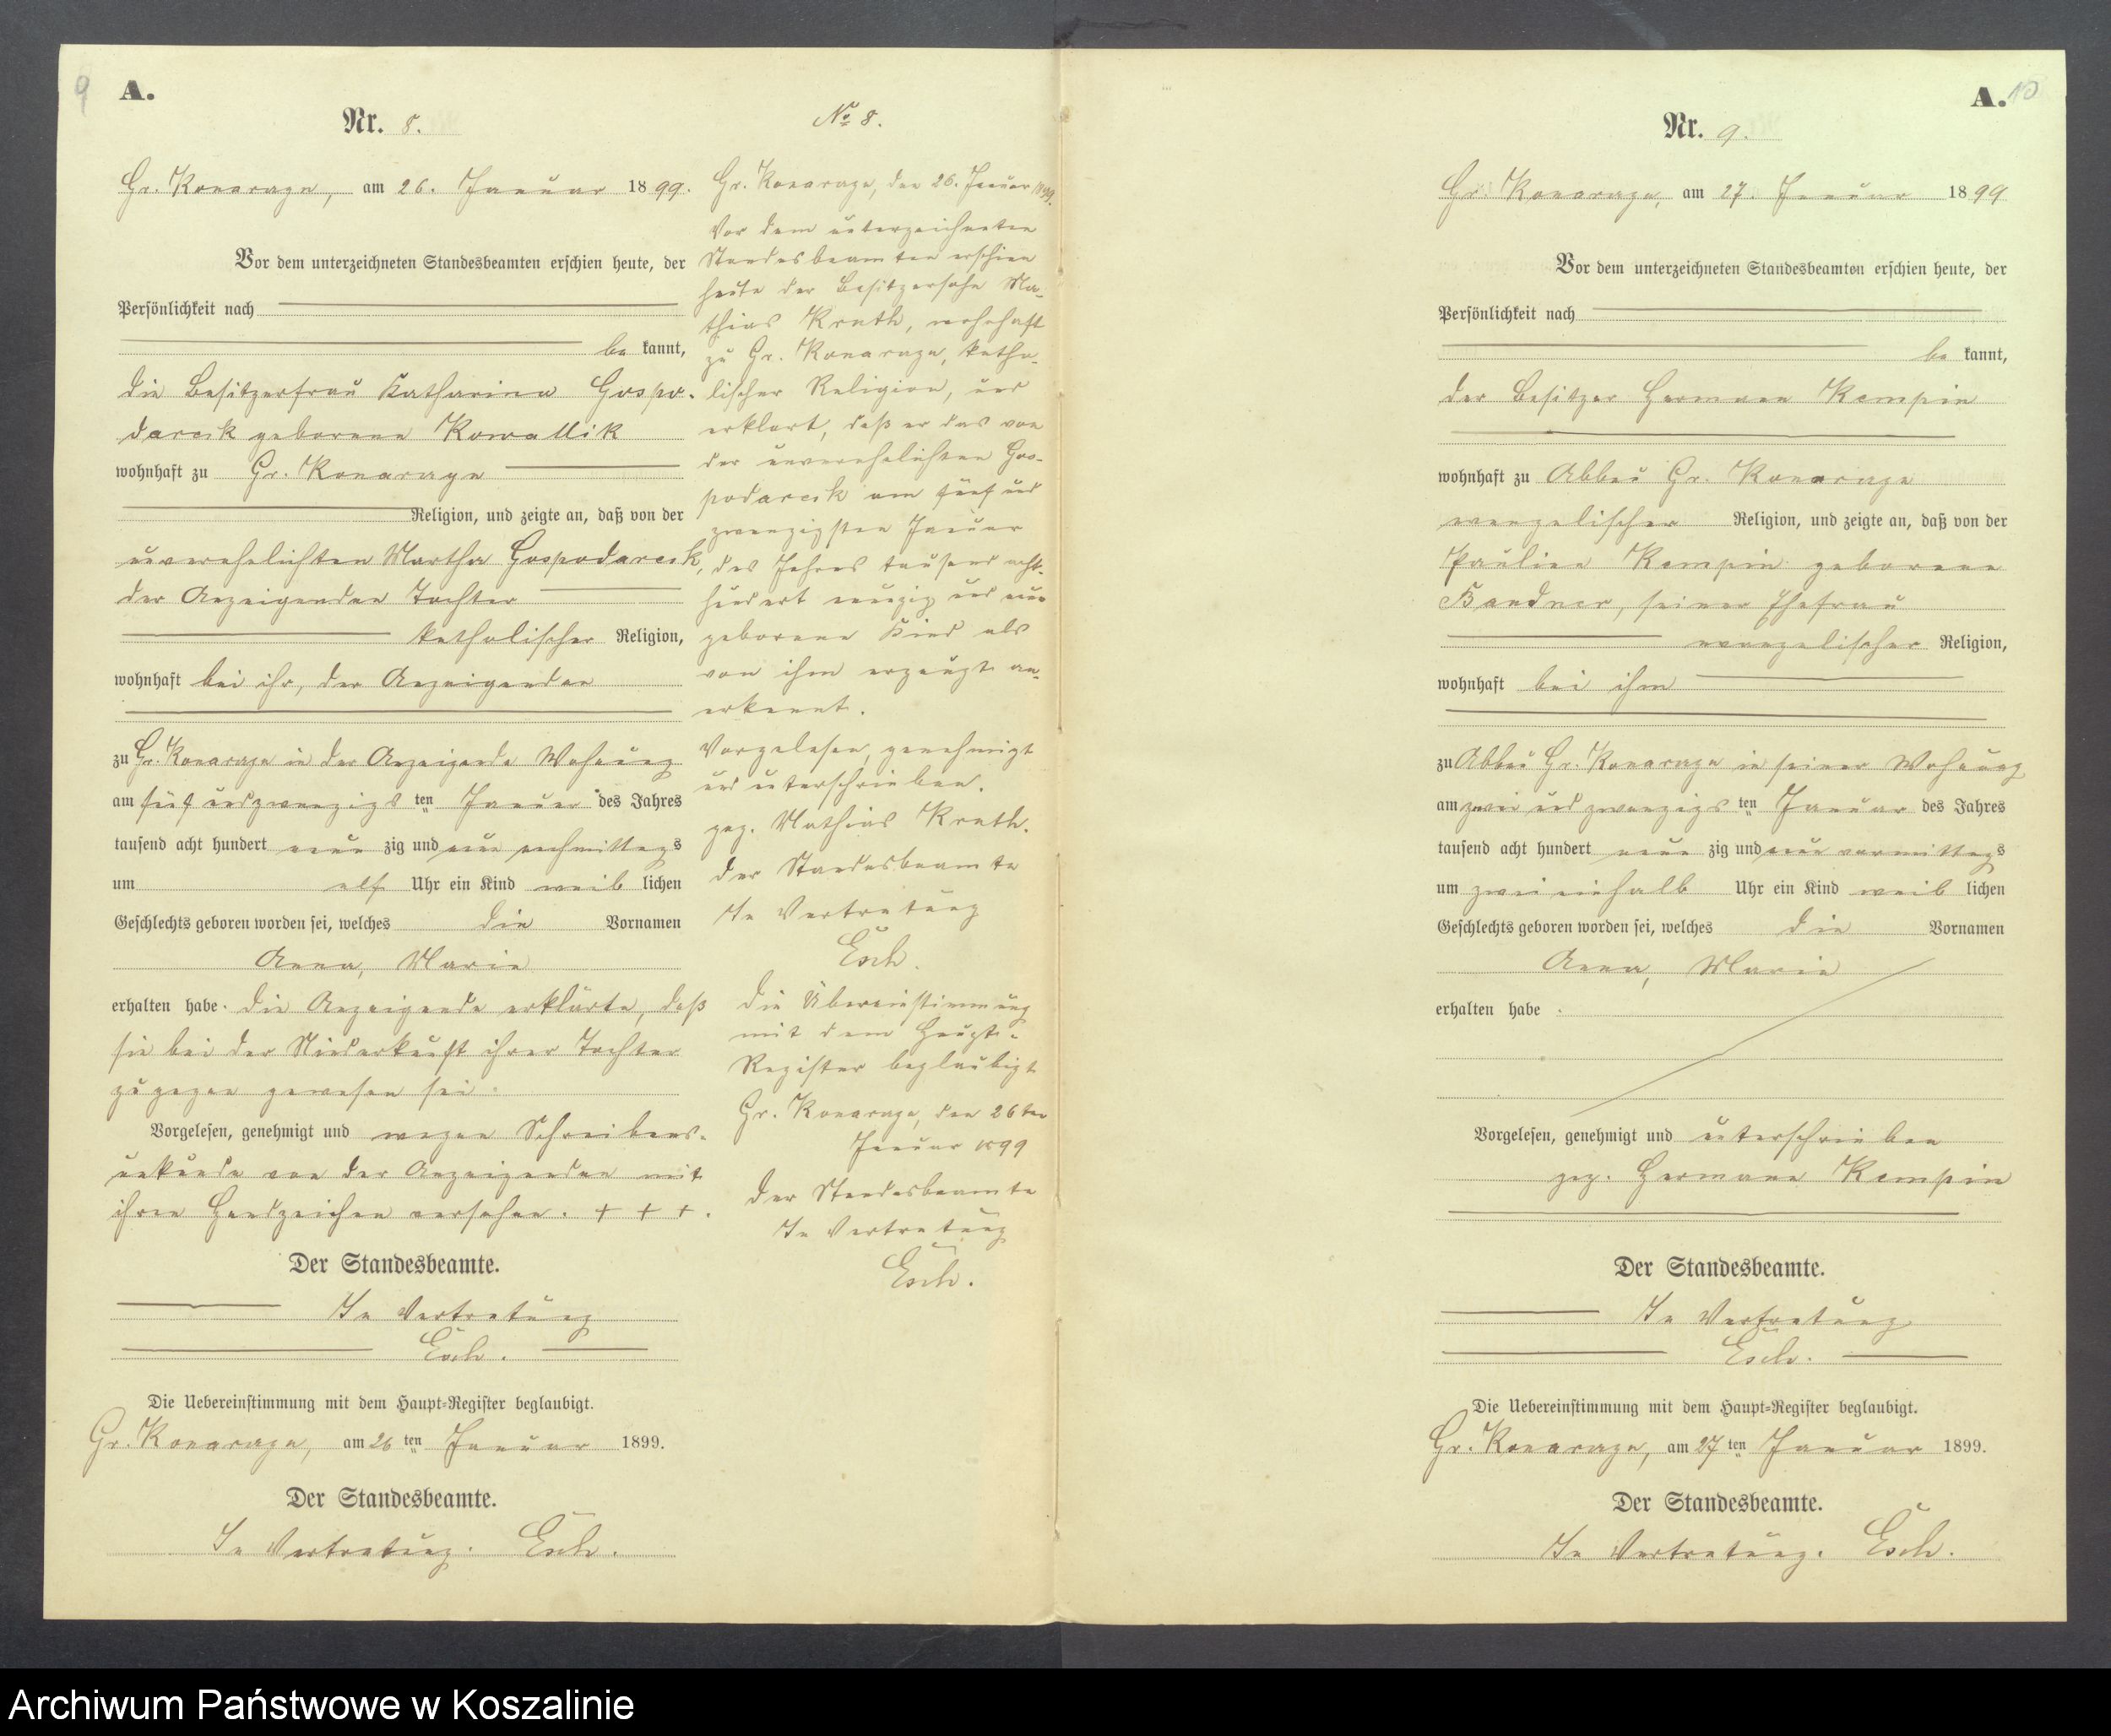 9
A.
Nr. 8.
Gr. Konarzyn, am 26. Januar 1899.
Vor dem unterzeichneten Standesbeamten erschien heute, der
Persönlichkeit nach
be kannt,
die Besitzerfrau Katharina Gospo-
darcik geborene Kowallik
wohnhaft zu Gr. Konarzyn
Religion, und zeigte an, daß von der
unverehelichten Martha Gospodarcik,
der Anzeigenden Tochter
katholischer Religion,
wohnhaft bei ihr, der Anzeigenden
zu Gr. Konarzyn in der Anzeigende Wohnung
am fünf und zwanzigs ten Januar des Jahres
tausend acht hundert neun zig und neun nachmittags
um elf Uhr ein Kind weib lichen
Geschlechts geboren worden sei, welches die Vornamen
Anna, Marie
erhalten habe. Die Anzeigende erklärte, daß
sie bei der Niederkunft ihrer Tochter
zugegen gewesen sei.
Vorgelesen, genehmigt und wegen Schreibens-
unkunde von der Anzeigenden mit
ihren Handzeichen versehen. + + +.
Der Standesbeamte.
In Vertretung
Esch.
Die Uebereinstimmung mit dem Haupt-Register beglaubigt.
Gr. Konarzyn, am 26 ten Januar 1899.
Der Standesbeamte.
In Vertretung. Esch.
No 8.
Gr. Konarzyn, den 26. Januar 1899.
Vor dem unterzeichneten
Standesbeamten erschien
heute der Besitzersohn Ma-
thias Knuth, wohnhaft
zu Gr. Konarzyn, katho-
lischer Religion, und
erklärt, daß er das von
der unverehelichten Gos-
podarcik am fünf und
zwanzigsten Januar
des Jahres tausend acht-
hundert neunzig und neun
geborene Kind als
von ihm erzeugt an-
erkennt.
Vorgelesen, genehmigt
und unterschrieben.
gez. Mathias Knuth.
Der Standesbeamte
In Vertretung
Esch.
Die Übereinstimmung
mit dem Haupt-
Register beglaubigt
Gr. Konarzyn, den 26ten
Januar 1899
Der Standesbeamte
In Vertretung
Esch.
A. 10
Nr. 9.
Gr. Konarzyn, am 27. Januar 1899
Vor dem unterzeichneten Standesbeamten erschien heute, der
Persönlichkeit nach
be kannt,
der Besitzer Hermann Kempin
wohnhaft zu Abbau Gr. Konarzyn
evangelischer Religion, und zeigte an, daß von der
Pauline Kempin geborene
Bandner, seiner Ehefrau
evangelischer Religion,
wohnhaft bei ihm
zu Abbau Gr. Konarzyn in seiner Wohnung
am zwei und zwanzigs ten Januar des Jahres
tausend acht hundert neun zig und neun vormittags
um zwei einhalb Uhr ein Kind weib lichen
Geschlechts geboren worden sei, welches die Vornamen
Anna, Marie
erhalten habe.
Vorgelesen, genehmigt und unterschrieben
gez. Hermann Kempin
Der Standesbeamte.
In Vertretung
Esch.
Die Uebereinstimmung mit dem Haupt-Register beglaubigt.
Gr. Konarzyn, am 27 ten Januar 1899.
Der Standesbeamte.
In Vertretung. Esch.
Archiwum Państwowe w Koszalinie